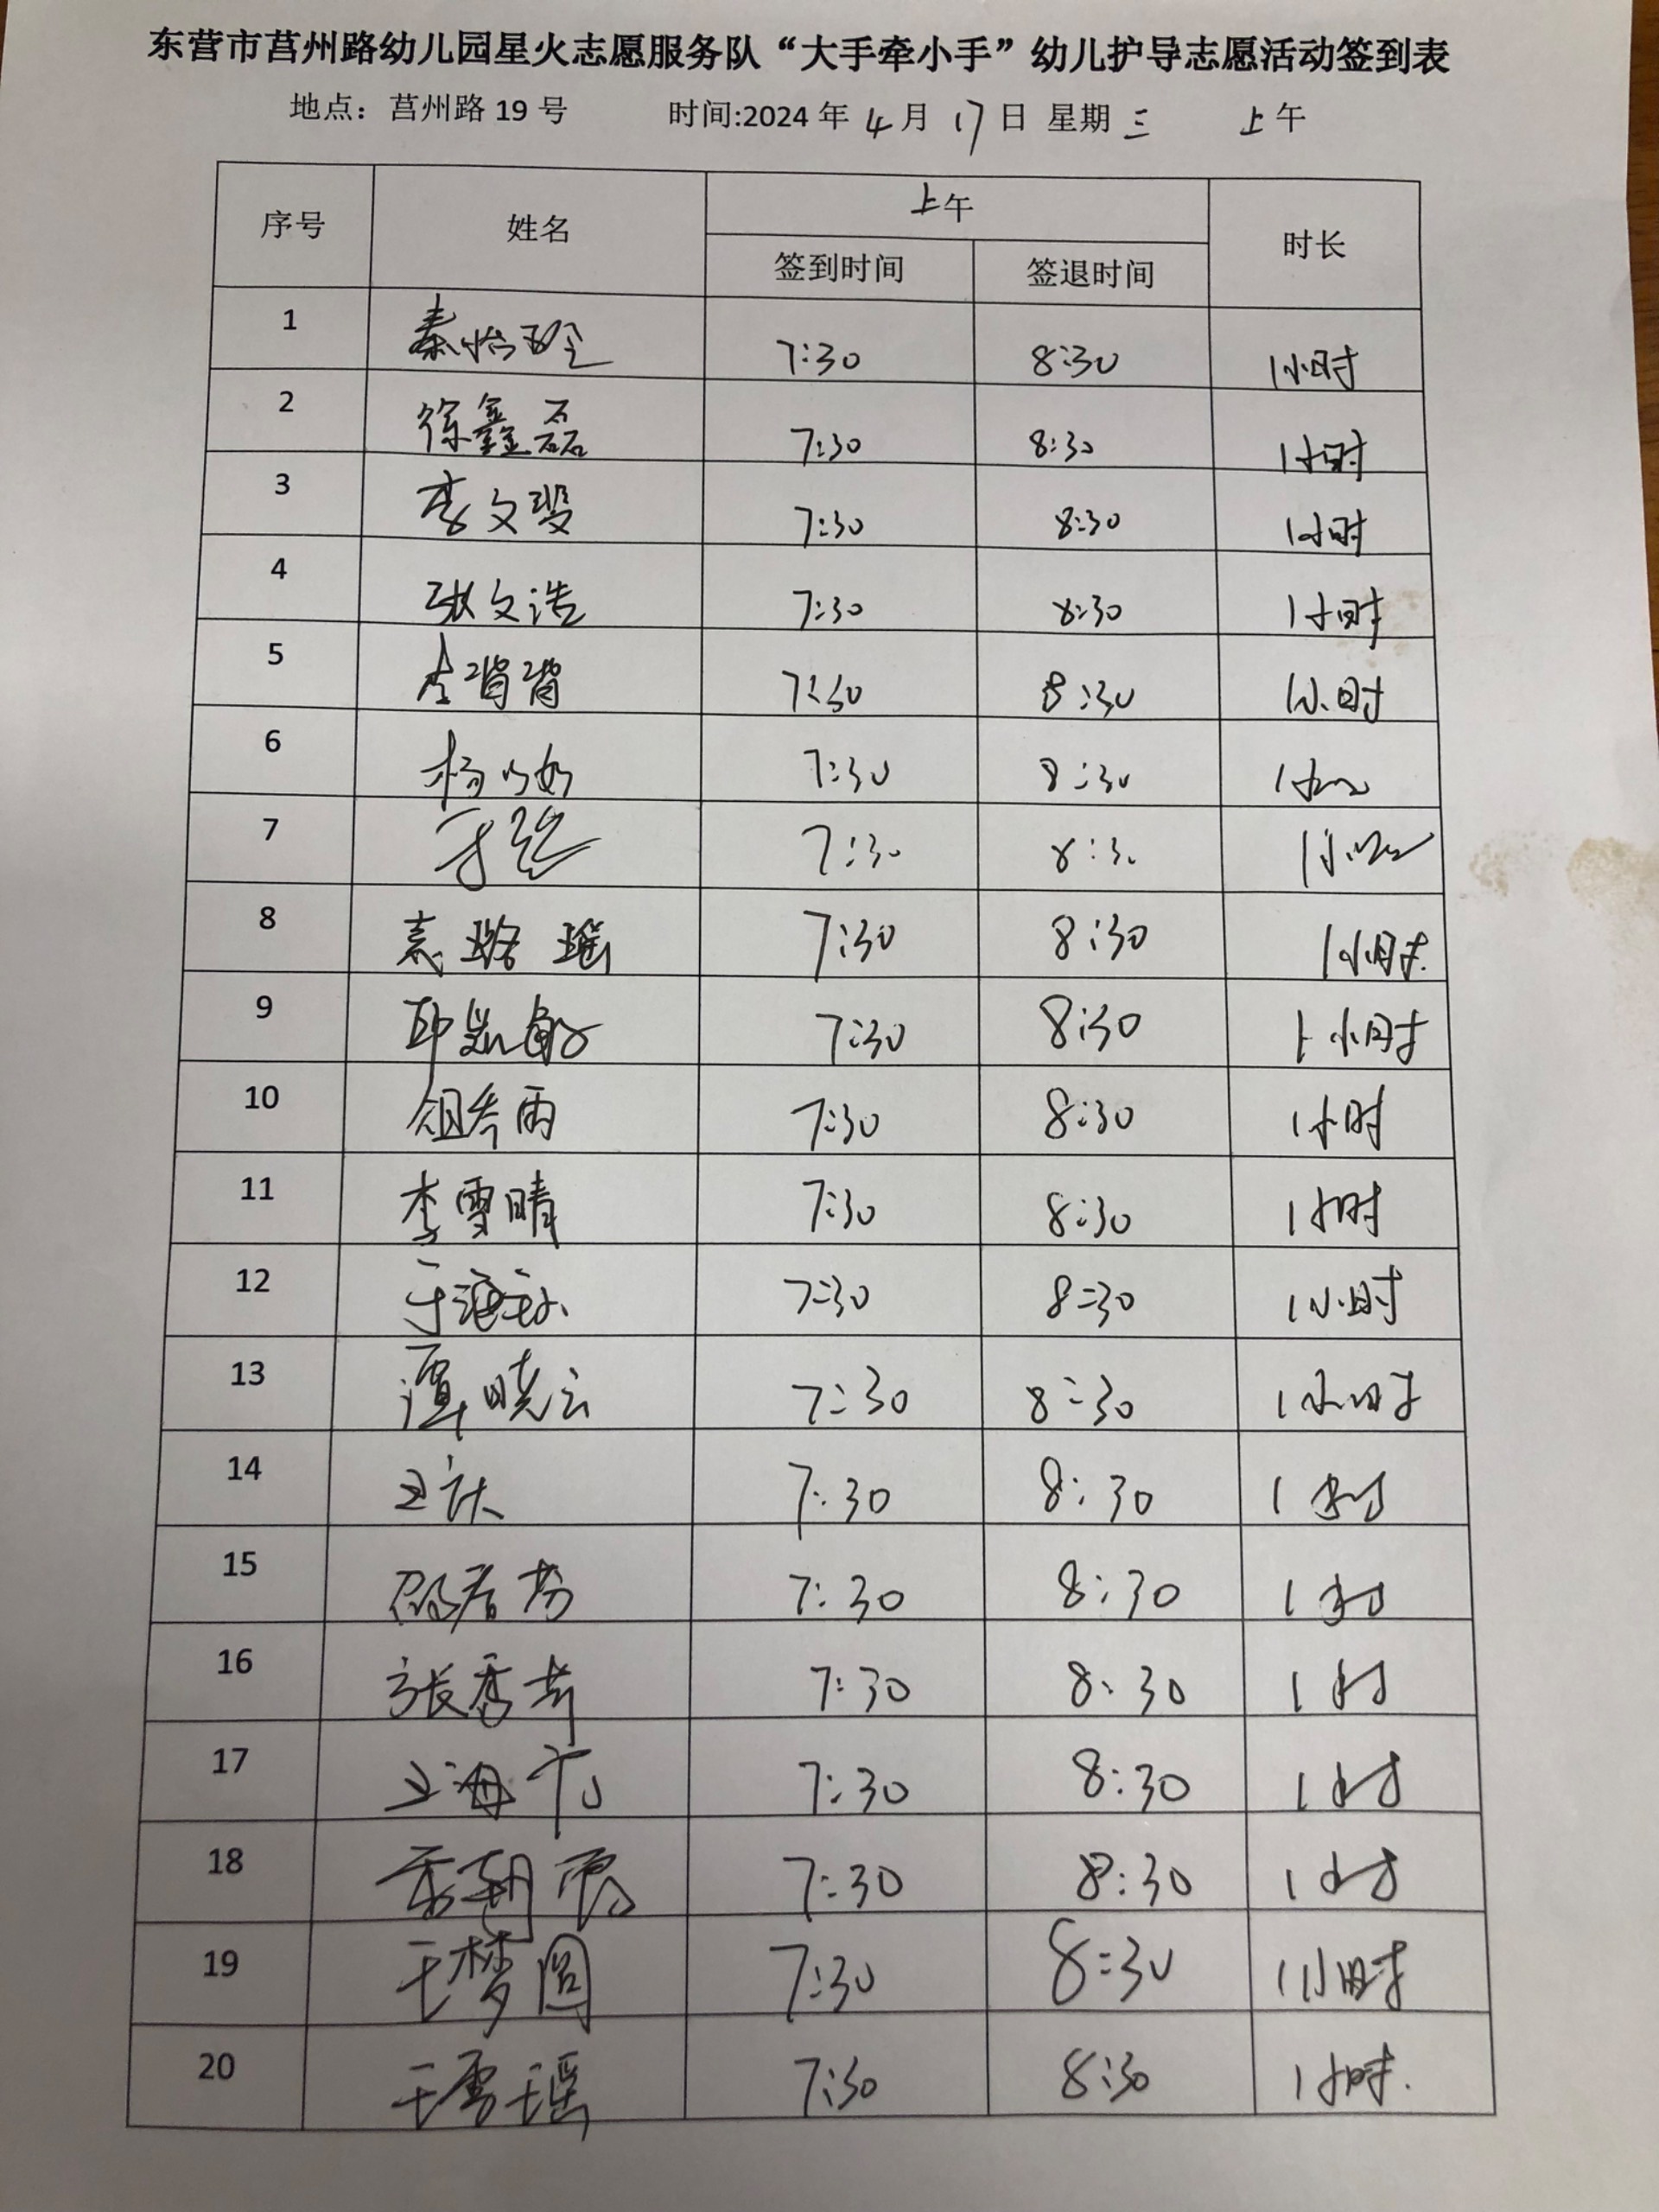 东营市莒州路幼儿园星火志愿服务队“大手牵小手”幼儿护导志愿活动签到表
地点：莒州路 19 号 时间:2024 年 4 月 17 日 星期 三 上午
序号 姓名 上午 时长
签到时间 签退时间
1 秦怡 7:30 8:30 1小时
2 徐鑫磊 7:30 8:30 1小时
3 李文 7:30 8:30 1小时
4 张文浩 7:30 8:30 1小时
5 李 7:30 8:30 1小时
6 杨 7:30 8:30 1小时
7 7:30 8:30 1小时
8 袁璐瑶 7:30 8:30 1小时
9 7:30 8:30 1小时
10 雨 7:30 8:30 1小时
11 李雪晴 7:30 8:30 1小时
12 于 7:30 8:30 1小时
13 谭晓云 7:30 8:30 1小时
14 王 7:30 8:30 1小时
15 邵 7:30 8:30 1小时
16 张秀芹 7:30 8:30 1小时
17 王海 7:30 8:30 1小时
18 朝霞 7:30 8:30 1小时
19 王梦圆 7:30 8:30 1小时
20 王雪瑶 7:30 8:30 1小时